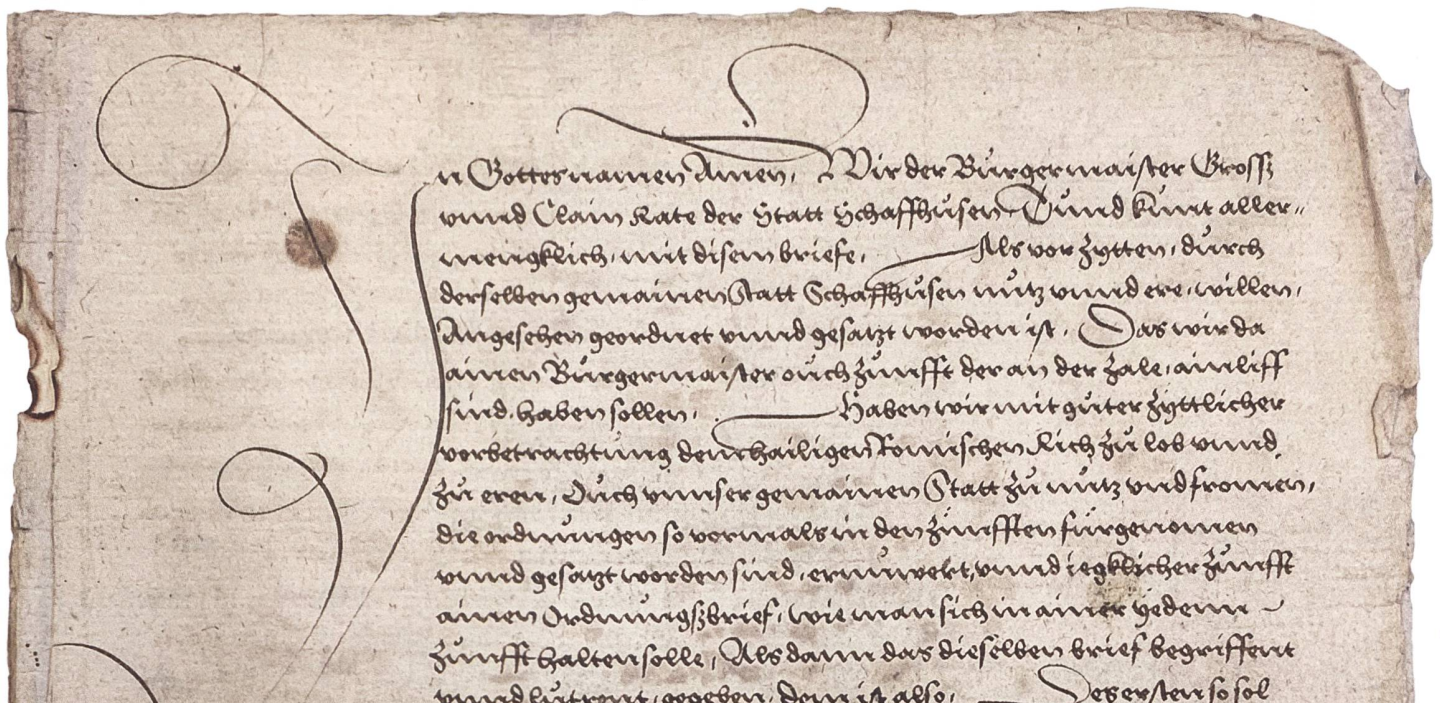 In Gottes namen Amen, Wir der Bürgermaister Gross
vnnd Clain Rate der Statt Schaffhusen Tund kunt aller-
mengklich, mit disem briefe, Als vor zytten, durch
derselben gemainen Statt Schaffhusen nutz vnnd ere, willen,
Angesehen geordnet vnnd gesatzt worden ist, Das wir da
ainen Burgermaister ouch zunfft der an der zale, ainliff
sind, haben sollen, Haben wir mit guter zyttlicher
vorbetrachtung dem hailigen Romischen Rich zu lob vnnd
zu eren, Ouch vnnser gemainen Statt zu nutz vnd fromen,
die ordnungen so vormals in den zunfften furgenomen
vnnd gesatzt worden sind, ernuwert, vnnd iegklicher zunfft
ainen Ordnungsbrief, wie man sich in ainer yedenn
zunfft halten solle, Als dann das dieselben brief begriffent
vnnd lutrent, gegeben, dem ist also, Des ersten so sol